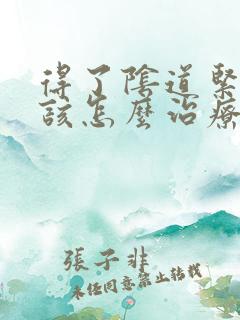 得了陰道緊
該怎麼治療
張子非
未經同意禁止轉載